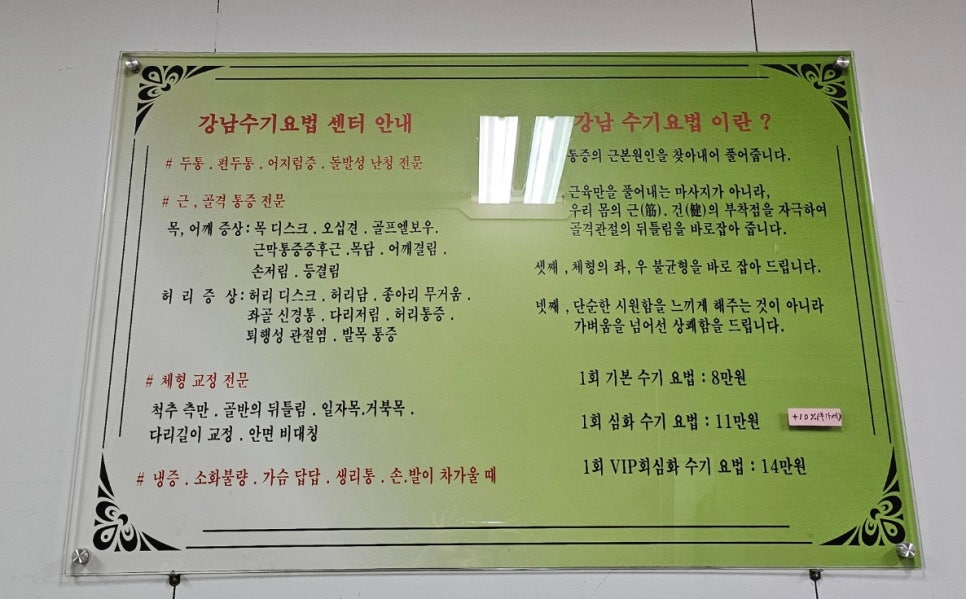 강남수기요법 센터 안내
# 두통 . 편두통 . 어지럼증 . 돌발성 난청 전문
# 근 , 골격 통증 전문
목, 어깨 증상 : 목 디스크 . 오십견 . 골프엘보우 .
근막통증증후근 . 목담 . 어깨결림 .
손저림 . 등결림
허 리 증 상 : 허리 디스크 . 허리담 . 종아리 무거움 .
좌골 신경통 . 다리저림 . 허리통증 .
퇴행성 관절염 . 발목 통증
# 체형 교정 전문
척추 측만 . 골반의 뒤틀림 . 일자목.거북목 .
다리길이 교정 . 안면 비대칭
# 냉증 . 소화불량 . 가슴 답답 . 생리통 . 손.발이 차가울 때
강남 수기요법 이란 ?
통증의 근본원인을 찾아내어 풀어줍니다.
, 근육만을 풀어내는 마사지가 아니라,
우리 몸의 근(筋) . 건(腱)의 부착점을 자극하여
골격관절의 뒤틀림을 바로잡아 줍니다.
셋째 , 체형의 좌, 우 불균형을 바로 잡아 드립니다.
넷째 , 단순한 시원함을 느끼게 해주는 것이 아니라
가벼움을 넘어선 상쾌함을 드립니다.
1회 기본 수기 요법 : 8만원
1회 심화 수기 요법 : 11만원
+10%(부가세)
1회 VIP회심화 수기 요법 : 14만원